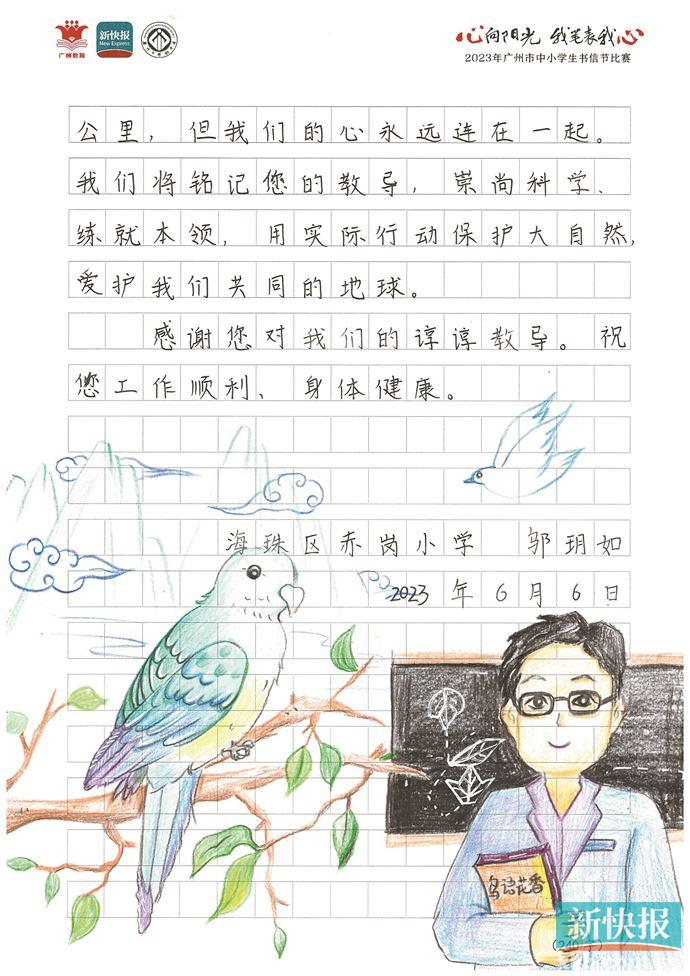 广州教育
新快报
New Express
心向阳光 我笔表我心
2023年广州市中小学生书信节比赛
公里，但我们的心永远连在一起。
我们将铭记您的教导，崇尚科学、
练就本领，用实际行动保护大自然，
爱护我们共同的地球。
感谢您对我们的谆谆教导。祝
您工作顺利、身体健康。
海珠区赤岗小学 邬玥如
2023年6月6日
鸟语花香
新快报